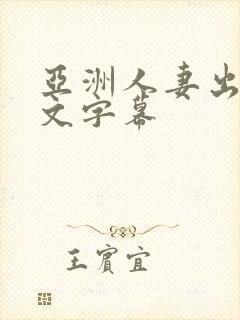 亞洲人妻出
文字幕
王賓宜